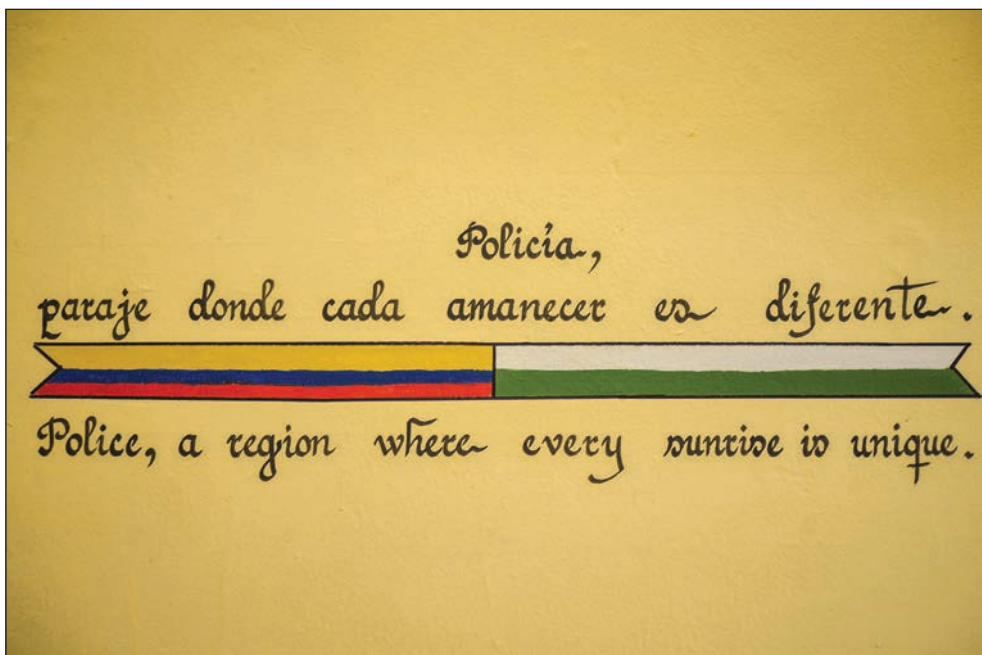 Policía,
paraje donde cada amanecer es diferente.
Police, a region where every sunrise is unique.